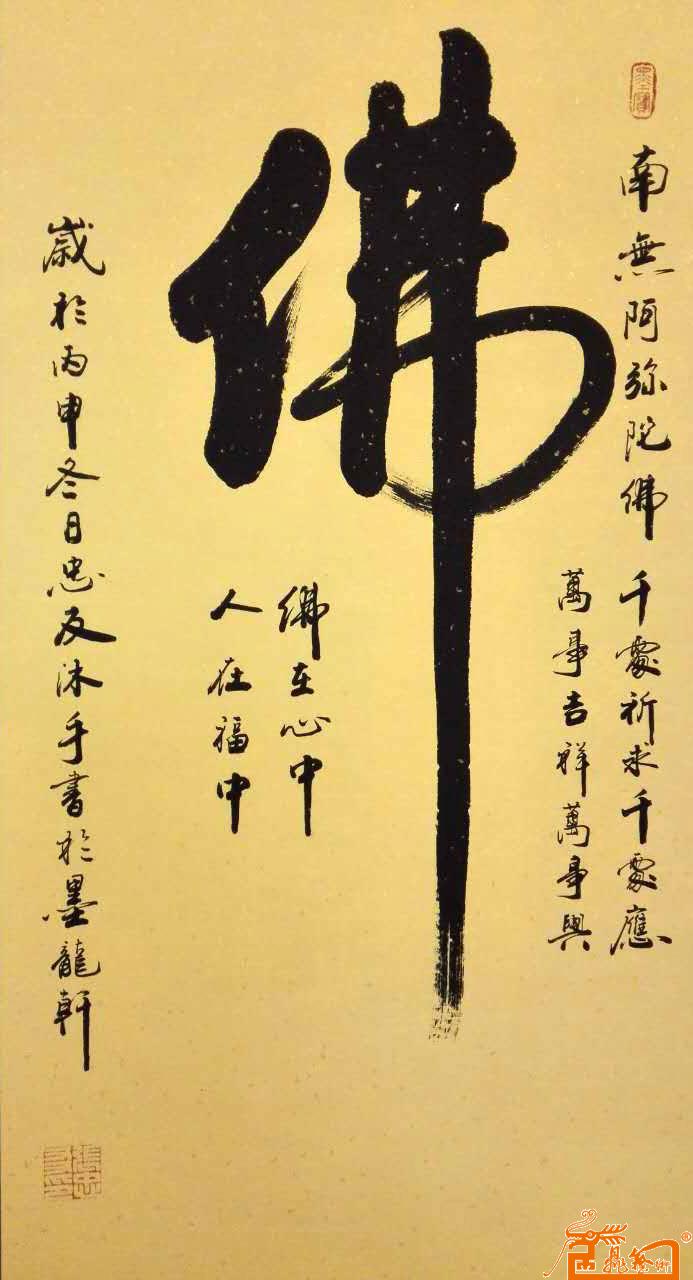 南無阿弥陀佛
千處祈求千處應
萬事吉祥萬事興
佛
佛在心中
人在福中
歲於丙申冬日忠反沐手書於墨龍軒